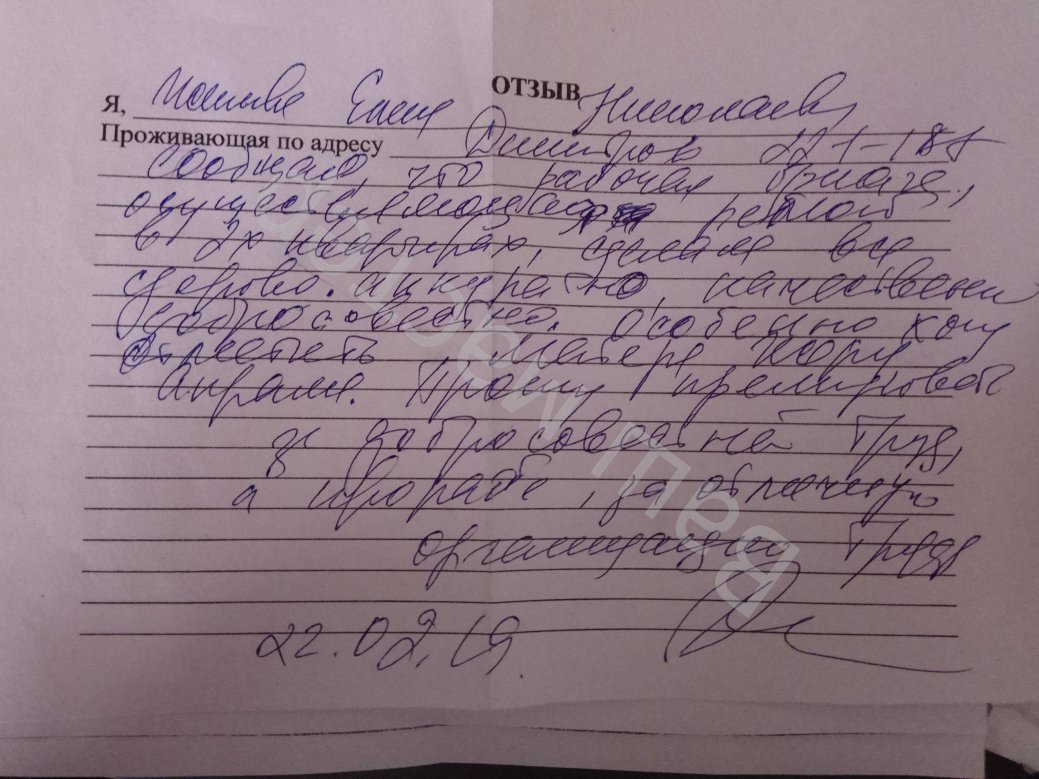 ОТЗЫВ
Я, Елена Николаевна
Проживающая по адресу Димитрова 221-187
сообщаю, что рабочая бригада,
осуществляющая ремонт
в 2х квартирах, сделала все
здорово. аккуратно, качественно
добросовестно. Особенно хочу
отметить мастера
Прошу премировать
за добросовестный труд,
а прораба, за отличную
организацию труда
22.02.19
Ваш мастер